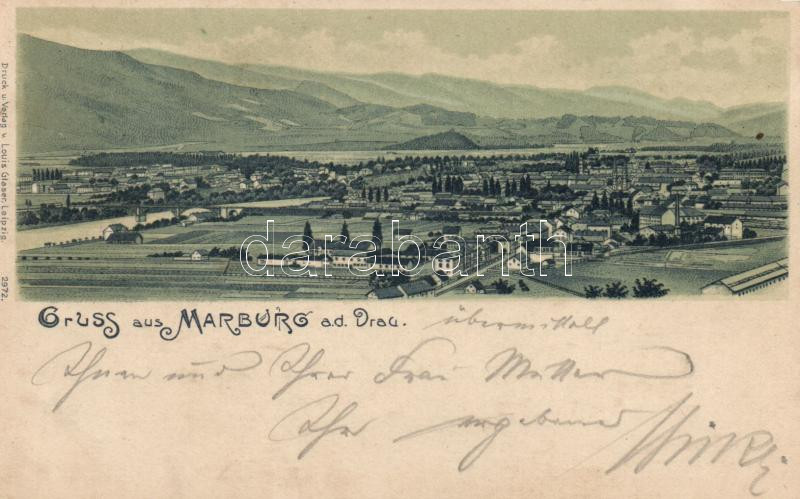 Druck u. Verlag v. Louis Glaser, Leipzig. 2972.
darabanth
Gruss aus MARBURG a.d. Drau.
übermittelt
Ihnen und Ihrer Frau Mutter
Ihr ergebener